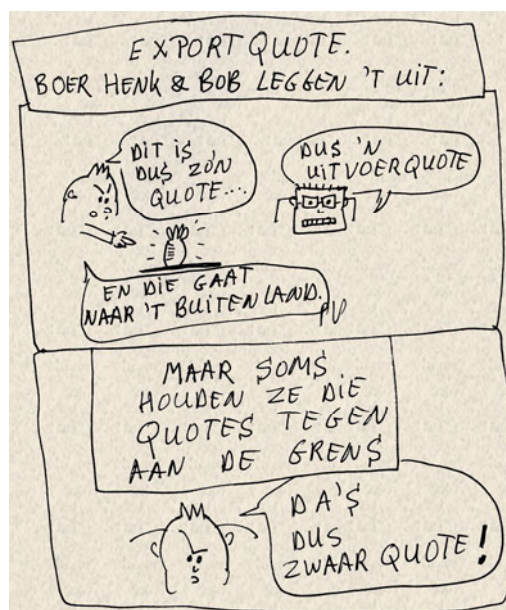 EXPORTQUOTE.
BOER HENK & BOB LEGGEN 'T UIT:
DIT IS
DUS ZO'N
QUOTE....
DUS 'N
UITVOERQUOTE
EN DIE GAAT
NAAR 'T BUITENLAND.
PV
MAAR SOMS
HOUDEN ZE DIE
QUOTES TEGEN
AAN DE GRENS
DA'S
DUS
ZWAAR QUOTE!